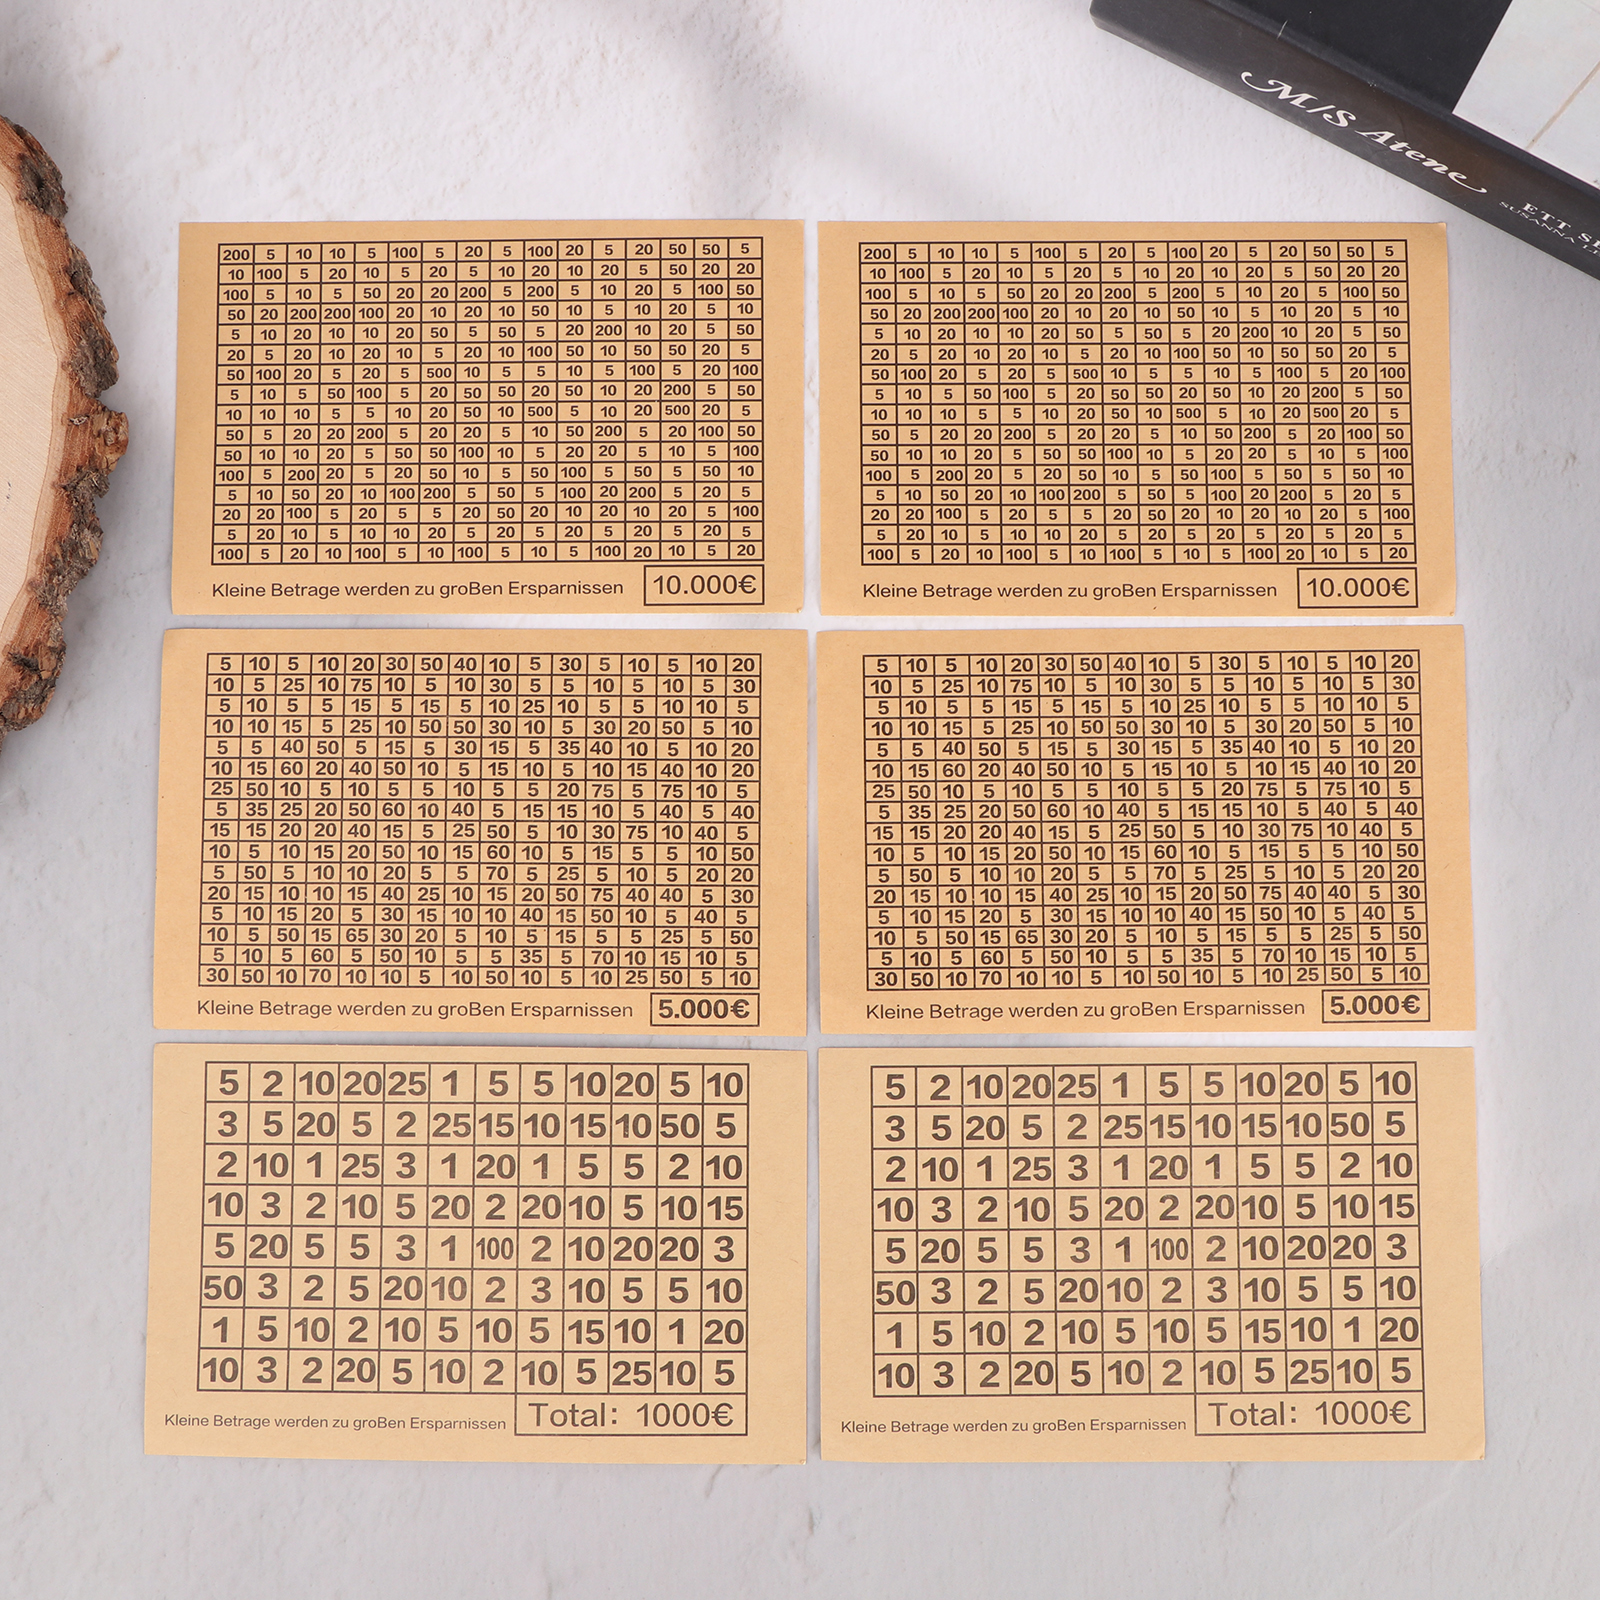 M/S Atene
200 5 10 10 5 100 5 20 5 100 20 5 20 50 50 5
10 100 5 20 10 5 20 5 10 20 10 20 5 50 20 20
100 5 10 5 50 20 20 200 5 200 5 10 20 5 100 50
50 20 200 200 100 20 10 20 10 50 10 5 10 20 5 10
5 10 20 10 10 5 20 50 5 50 5 20 200 10 20 5
20 5 10 20 10 5 20 10 100 50 10 50 50 20 5
50 100 20 5 20 5 500 10 5 5 10 5 100 5 20 100
5 10 5 50 100 5 20 50 50 20 50 10 20 200 5 50
10 10 10 5 5 10 20 50 10 500 5 10 20 500 20 5
50 5 20 20 200 5 20 20 5 10 50 200 5 20 100 50
50 10 10 20 5 50 50 100 10 5 20 20 5 10 5 100
100 5 200 20 5 20 50 10 5 50 100 5 50 5 50 10
5 10 50 20 10 100 200 5 50 5 100 20 200 5 20 5
20 20 100 5 20 20 5 20 50 20 10 20 10 20 5 100
5 20 10 5 10 10 20 5 20 5 20 5 10 5 20 5
100 5 20 10 100 5 10 100 5 10 5 100 20 10 5 20
Kleine Betrage werden zu groBen Ersparnissen 10.000€
200 5 10 10 5 100 5 20 5 100 20 5 20 50 50 5
10 100 5 20 10 5 20 5 10 20 10 20 5 50 20 20
100 5 10 5 50 20 20 200 5 200 5 10 20 5 100 50
50 20 200 200 100 20 10 20 10 50 10 5 10 20 5 10
5 10 20 10 10 5 20 50 5 50 5 20 200 10 20 5
20 5 10 20 10 5 20 10 100 50 10 50 50 20 5
50 100 20 5 20 5 500 10 5 5 10 5 100 5 20 100
5 10 5 50 100 5 20 50 50 20 50 10 20 200 5 50
10 10 10 5 5 10 20 50 10 500 5 10 20 500 20 5
50 5 20 20 200 5 20 20 5 10 50 200 5 20 100 50
50 10 10 20 5 50 50 100 10 5 20 20 5 10 5 100
100 5 200 20 5 20 50 10 5 50 100 5 50 5 50 10
5 10 50 20 10 100 200 5 50 5 100 20 200 5 20 5
20 20 100 5 20 20 5 20 50 20 10 20 10 20 5 100
5 20 10 5 10 10 20 5 20 5 20 5 10 5 20 5
100 5 20 10 100 5 10 100 5 10 5 100 20 10 5 20
Kleine Betrage werden zu groBen Ersparnissen 10.000€
5 10 5 10 20 30 50 40 10 5 30 5 10 5 10 20
10 5 25 10 75 10 5 10 30 5 5 10 5 10 5 30
5 10 5 5 15 5 15 5 10 25 10 5 5 10 10 5
10 10 15 5 25 10 50 50 30 10 5 30 20 50 5 10
5 5 40 50 5 15 5 30 15 5 35 40 10 5 10 20
10 15 60 20 40 50 10 5 15 10 5 10 15 40 10 20
25 50 10 5 10 5 5 10 5 5 20 75 5 75 10 5
5 35 25 20 50 60 10 40 5 15 15 10 5 40 5 40
15 15 20 20 40 15 5 25 50 5 10 30 75 10 40 5
10 5 10 15 20 50 10 15 60 10 5 15 5 5 10 50
5 50 5 10 10 20 5 5 70 5 25 5 10 5 20 20
20 15 10 10 15 40 25 10 15 20 50 75 40 40 5 30
5 10 15 20 5 30 15 10 10 40 15 50 10 5 40 5
10 5 50 15 65 30 20 5 10 5 15 5 5 25 5 50
5 10 5 60 5 50 10 5 5 35 5 70 10 15 10 5
30 50 10 70 10 10 5 10 50 10 5 10 25 50 5 10
Kleine Betrage werden zu groBen Ersparnissen 5.000€
5 10 5 10 20 30 50 40 10 5 30 5 10 5 10 20
10 5 25 10 75 10 5 10 30 5 5 10 5 10 5 30
5 10 5 5 15 5 15 5 10 25 10 5 5 10 10 5
10 10 15 5 25 10 50 50 30 10 5 30 20 50 5 10
5 5 40 50 5 15 5 30 15 5 35 40 10 5 10 20
10 15 60 20 40 50 10 5 15 10 5 10 15 40 10 20
25 50 10 5 10 5 5 10 5 5 20 75 5 75 10 5
5 35 25 20 50 60 10 40 5 15 15 10 5 40 5 40
15 15 20 20 40 15 5 25 50 5 10 30 75 10 40 5
10 5 10 15 20 50 10 15 60 10 5 15 5 5 10 50
5 50 5 10 10 20 5 5 70 5 25 5 10 5 20 20
20 15 10 10 15 40 25 10 15 20 50 75 40 40 5 30
5 10 15 20 5 30 15 10 10 40 15 50 10 5 40 5
10 5 50 15 65 30 20 5 10 5 15 5 5 25 5 50
5 10 5 60 5 50 10 5 5 35 5 70 10 15 10 5
30 50 10 70 10 10 5 10 50 10 5 10 25 50 5 10
Kleine Betrage werden zu groBen Ersparnissen 5.000€
5 2 10 20 25 1 5 5 10 20 5 10
3 5 20 5 2 25 15 10 15 10 50 5
2 10 1 25 3 1 20 1 5 5 2 10
10 3 2 10 5 20 2 20 10 5 10 15
5 20 5 5 3 1 100 2 10 20 20 3
50 3 2 5 20 10 2 3 10 5 5 10
1 5 10 2 10 5 10 5 15 10 1 20
10 3 2 20 5 10 2 10 5 25 10 5
Kleine Betrage werden zu groBen Ersparnissen Total: 1000€
5 2 10 20 25 1 5 5 10 20 5 10
3 5 20 5 2 25 15 10 15 10 50 5
2 10 1 25 3 1 20 1 5 5 2 10
10 3 2 10 5 20 2 20 10 5 10 15
5 20 5 5 3 1 100 2 10 20 20 3
50 3 2 5 20 10 2 3 10 5 5 10
1 5 10 2 10 5 10 5 15 10 1 20
10 3 2 20 5 10 2 10 5 25 10 5
Kleine Betrage werden zu groBen Ersparnissen Total: 1000€